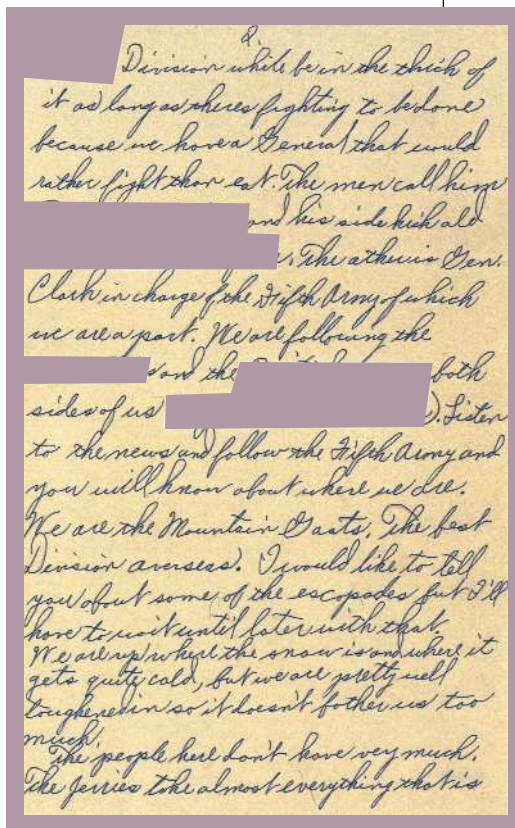 2.
Division while be in the thick of
it as long as theres fighting to be done
because we have a General that would
rather fight than eat. The men call him
and his side kick old
. The other is Gen.
Clark in charge of the Fifth Army of which
we are a part. We are following the
and the both
sides of us ). Listen
to the news and follow the Fifth Army and
you will know about where we are.
We are the Mountain Goats. The best
Division overseas. I would like to tell
you about some of the escapades but I'll
have to wait until later with that.
We are up where the snow is and where it
gets quite cold, but we are pretty well
toughened in so it doesn't bother us too
much.
The people here don't have very much.
The Jerries take almost everything that is